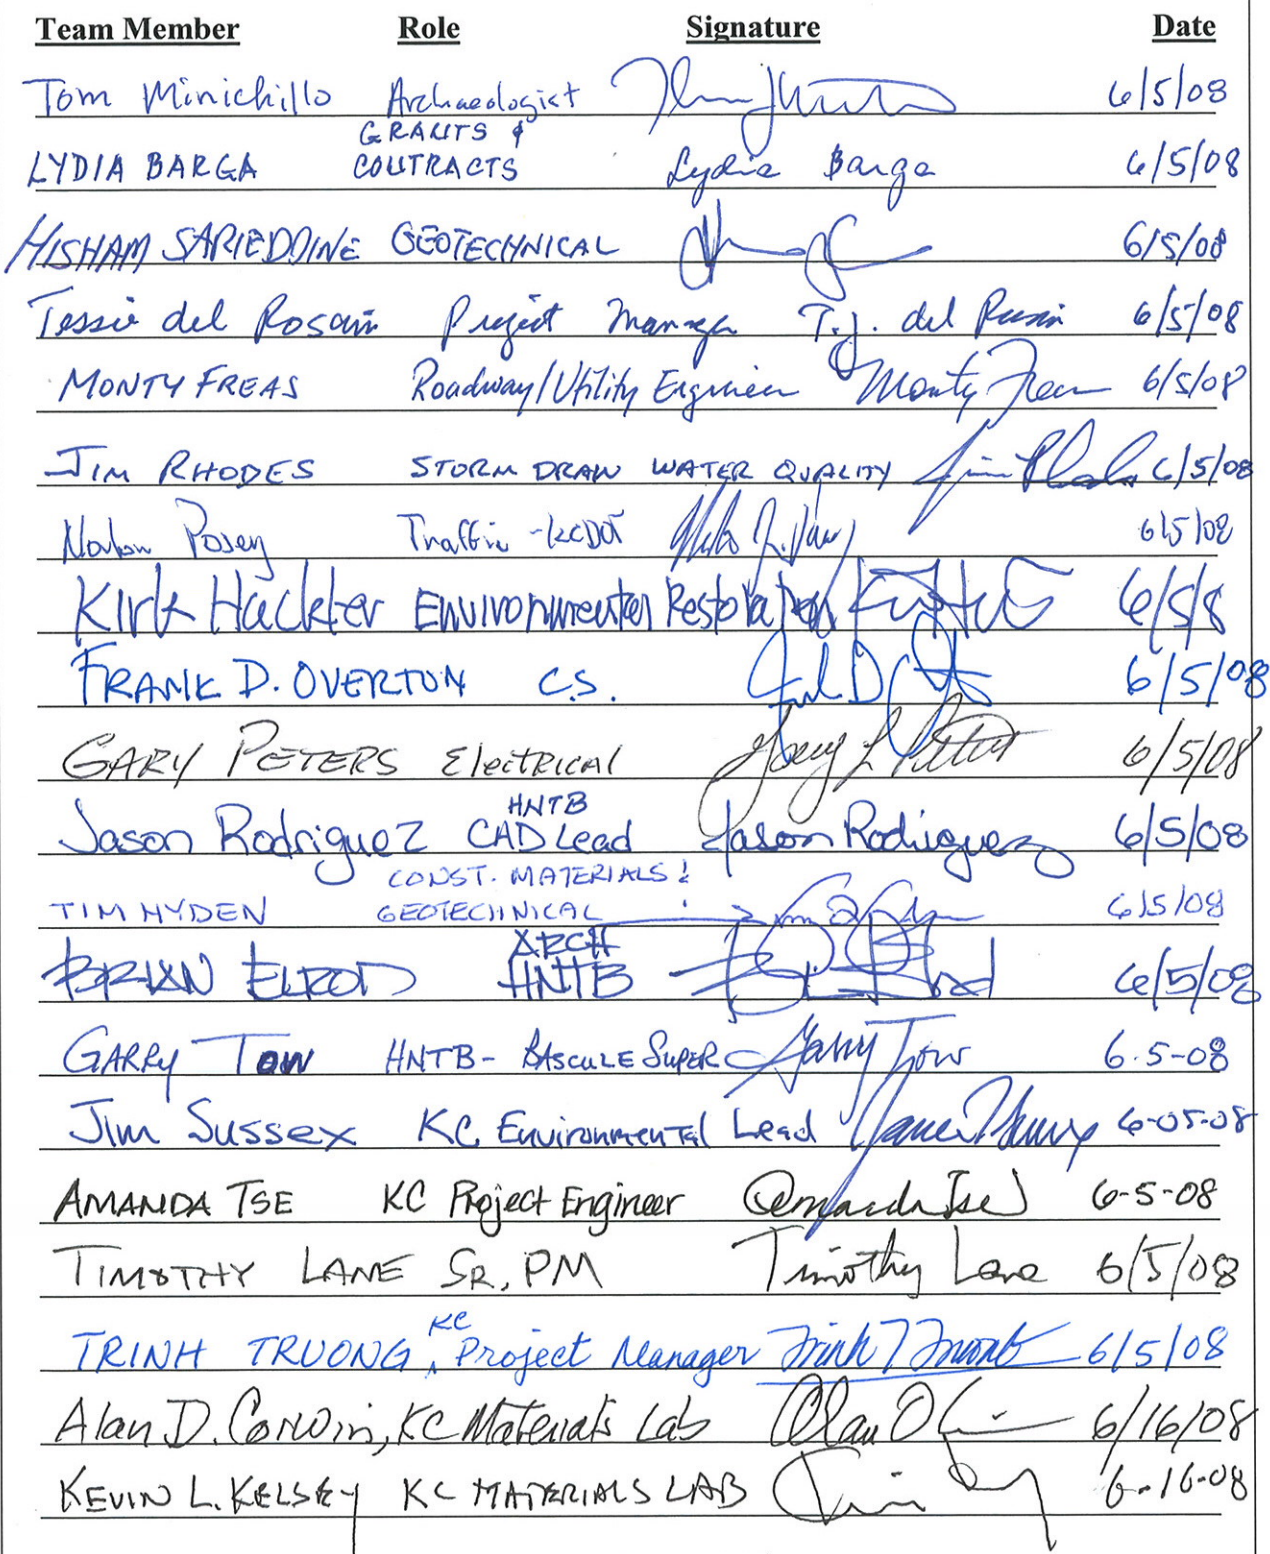 Team Member Role Signature Date
Tom Minichillo Archaeologist 6/5/08
LYDIA BARGA GRANTS & CONTRACTS Lydia Barga 6/5/08
HISHAM SARIEDDINE GEOTECHNICAL 6/5/08
Tessie del Rosario Project Manager T.J. del Rosario 6/5/08
MONTY FREAS Roadway/Utility Engineer Monty Freas 6/5/08
JIM RHODES STORM DRAIN WATER QUALITY Jim Rhodes 6/5/08
Norton Posey Traffic - KCDOT 6/5/08
Kirk Hackler Environmental Restoration 6/5/8
FRANK D. OVERTON C.S. 6/5/08
GARY PETERS Electrical Gary L Peters 6/5/08
Jason Rodriguez HNTB CAD Lead Jason Rodriguez 6/5/08
TIM HYDEN CONST. MATERIALS & GEOTECHNICAL 6/5/08
BRIAN ELROD ARCH HNTB 6/5/08
GARRY TOW HNTB - BASCULE SUPER Garry Tow 6.5-08
Jim Sussex KC Environmental Lead 6-05-08
AMANDA TSE KC Project Engineer Amanda Tse 6-5-08
TIMOTHY LANE SR. PM Timothy Lane 6/5/08
TRINH TRUONG, KC Project Manager Trinh T Truong 6/5/08
Alan D. Corwin, KC Materials Lab 6/16/08
KEVIN L. KELSEY KC MATERIALS LAB 6-16-08